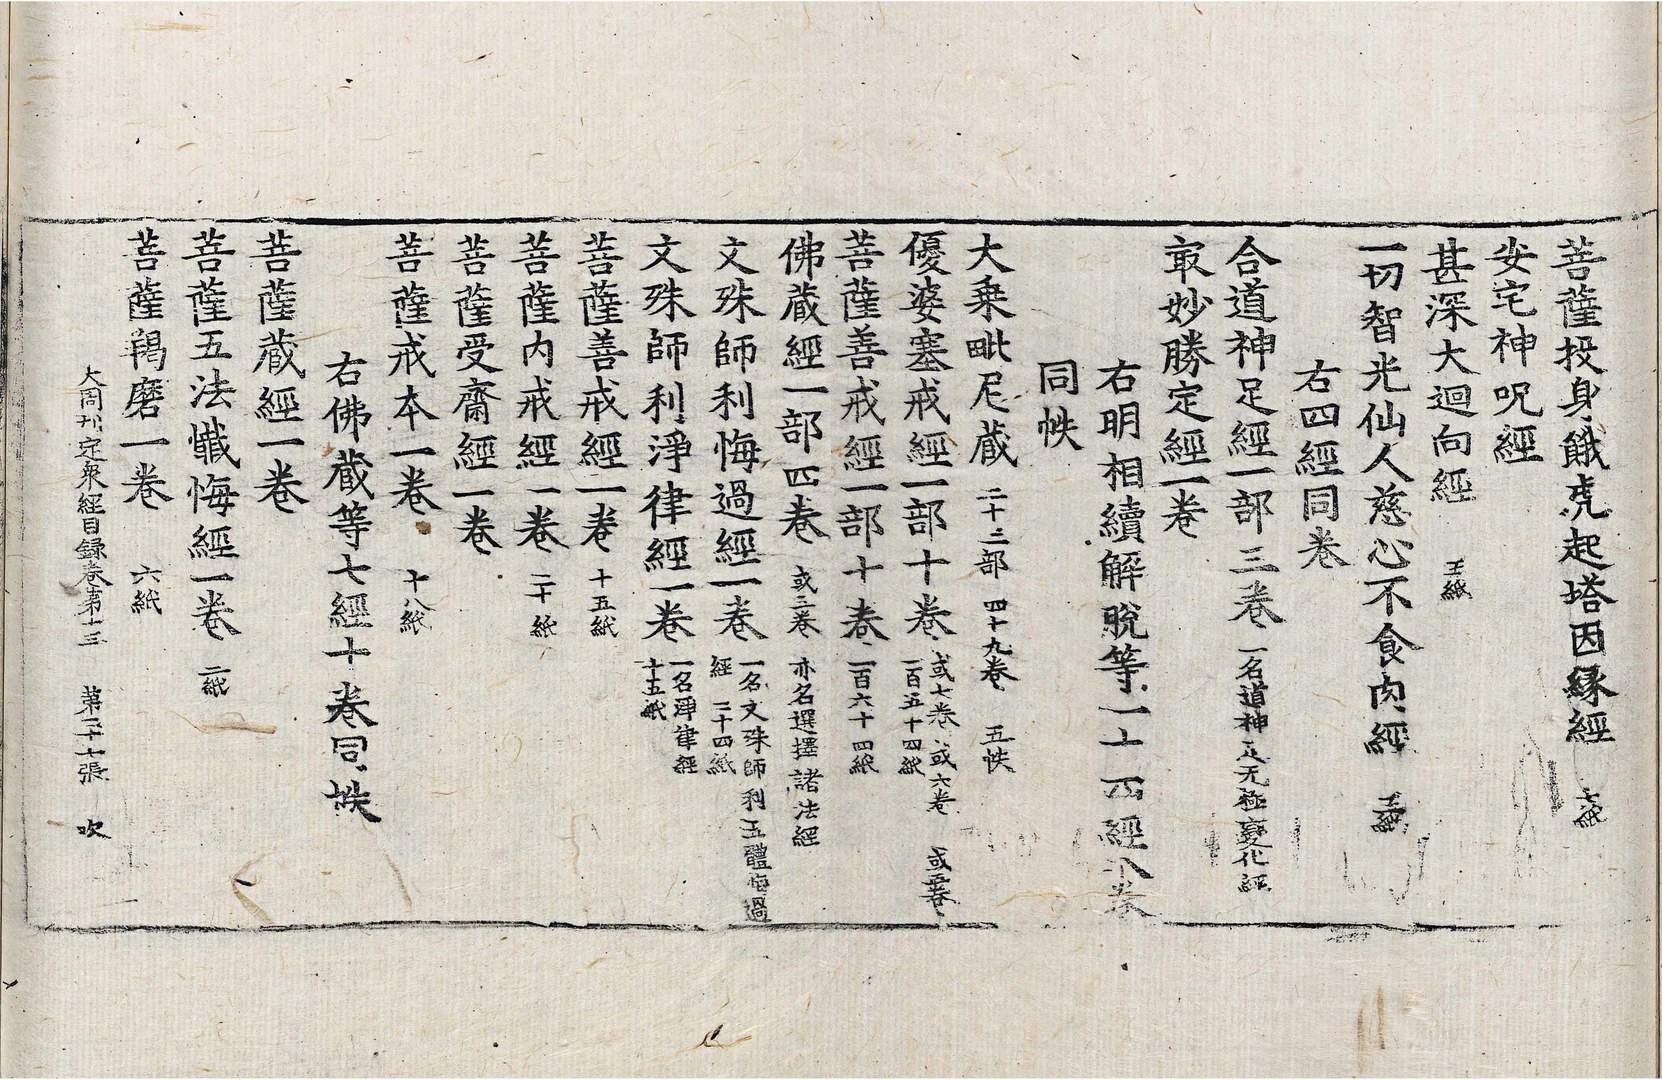 菩薩投身餓虎起塔因緣經 七紙
安宅神呪經
甚深大迴向經 五紙
一切智光仙人慈心不食肉經 三紙
右四經同卷
合道神足經一部三卷 一名道神足无極變化經
冣妙勝定經一卷
右明相續解脫等二十四經八卷
同帙
大乗毗尼蔵 二十二部 四十九卷 五帙
優婆塞戒經一部十卷 或七卷或六卷 或五卷
一百五十四紙
菩薩善戒經一部十卷 一百六十四紙
佛蔵經一部四卷 或三卷 亦名選擇諸法經
文殊師利悔過經一卷 一名文殊師利五體悔過
經 二十四紙
文殊師利淨律經一卷 一名淨律經
十五紙
菩薩善戒經一卷 十五紙
菩薩內戒經一卷 二十紙
菩薩受齋經一卷
菩薩戒本一卷 十八紙
右佛蔵等七經十卷同帙
菩薩蔵經一卷
菩薩五法懺悔經一卷 二紙
菩薩羯磨一卷 六紙
大周刊定衆經目録卷第十三 第二十七張 吹